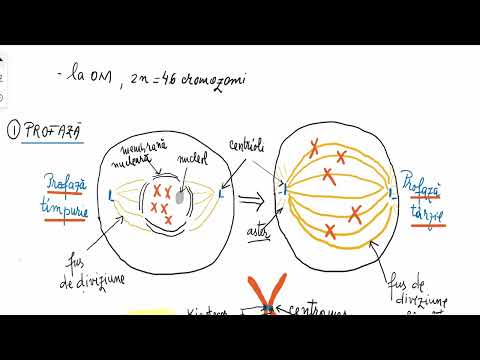 - la OM, 2n = 46 cromozomi
① PROFAZĂ
membrană
nucleară
nucleol
centrioli
Profază
timpurie
Profază
târzie
aster
fus
de diviziune
fus de
diviziune
centromer